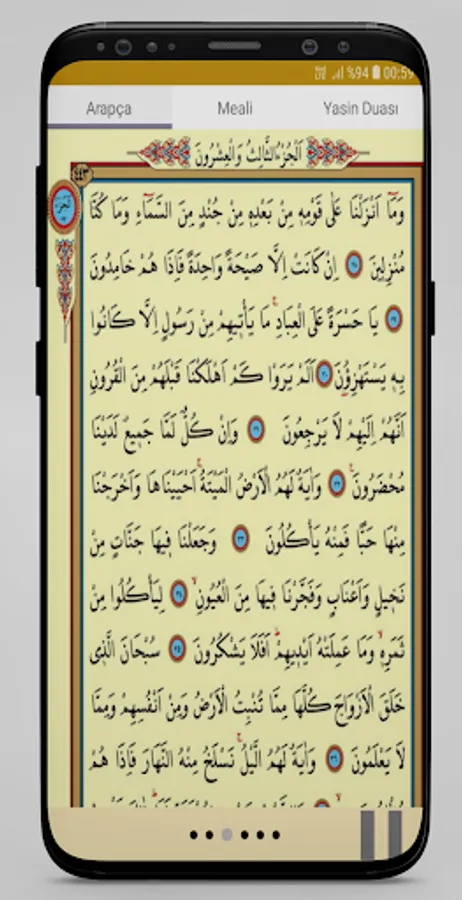 %94 00:59
Arapça Meali Yasin Duası
اَلْجُزْءُ الثَّالِثُ وَالْعِشْرُونَ
٤٤٣
وَمَٓا اَنْزَلْنَا عَلٰى قَوْمِه۪ مِنْ بَعْدِه۪ مِنْ جُنْدٍ مِنَ السَّمَٓاءِ وَمَا كُنَّا
مُنْزِل۪ينَ ٢٨ اِنْ كَانَتْ اِلَّا صَيْحَةً وَاحِدَةً فَاِذَا هُمْ خَامِدُونَ
٢٩ يَا حَسْرَةً عَلَى الْعِبَادِۚ مَا يَأْت۪يهِمْ مِنْ رَسُولٍ اِلَّا كَانُوا
بِه۪ يَسْتَهْزِؤُ۫نَ ٣٠ اَلَمْ يَرَوْا كَمْ اَهْلَكْنَا قَبْلَهُمْ مِنَ الْقُرُونِ
اَنَّهُمْ اِلَيْهِمْ لَا يَرْجِعُونَ ٣١ وَاِنْ كُلٌّ لَمَّا جَم۪يعٌ لَدَيْنَا
مُحْضَرُونَ۟ ٣٢ وَاٰيَةٌ لَهُمُ الْاَرْضُ الْمَيْتَةُۚ اَحْيَيْنَاهَا وَاَخْرَجْنَا
مِنْهَا حَبًّا فَمِنْهُ يَأْكُلُونَ ٣٣ وَجَعَلْنَا ف۪يهَا جَنَّاتٍ مِنْ
نَخ۪يلٍ وَاَعْنَابٍ وَفَجَّرْنَا ف۪يهَا مِنَ الْعُيُونِۙ ٣٤ لِيَأْكُلُوا مِنْ
ثَمَرِه۪ۙ وَمَا عَمِلَتْهُ اَيْد۪يهِمْۜ اَفَلَا يَشْكُرُونَ ٣٥ سُبْحَانَ الَّذ۪ي
خَلَقَ الْاَزْوَاجَ كُلَّهَا مِمَّا تُنْبِتُ الْاَرْضُ وَمِنْ اَنْفُسِهِمْ وَمِمَّا
لَا يَعْلَمُونَ ٣٦ وَاٰيَةٌ لَهُمُ الَّيْلُۚ نَسْلَخُ مِنْهُ النَّهَارَ فَاِذَا هُمْ